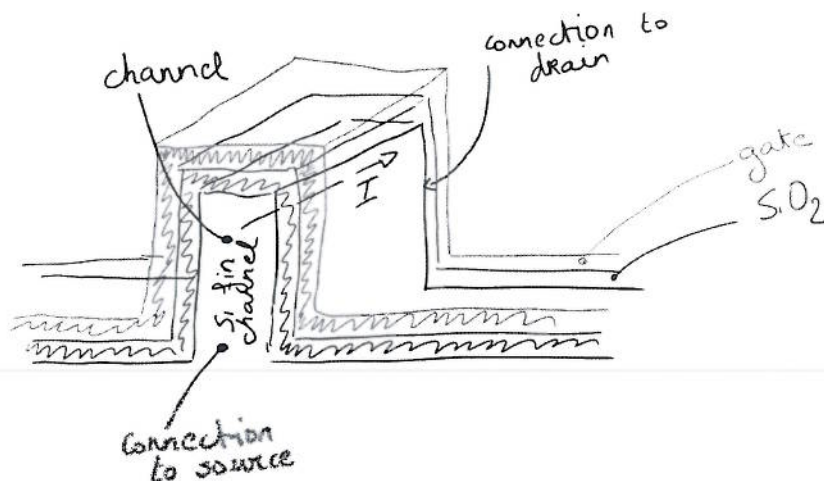 channel
connection to
drain
gate
SiO2
I
Si fin
channel
connection
to source